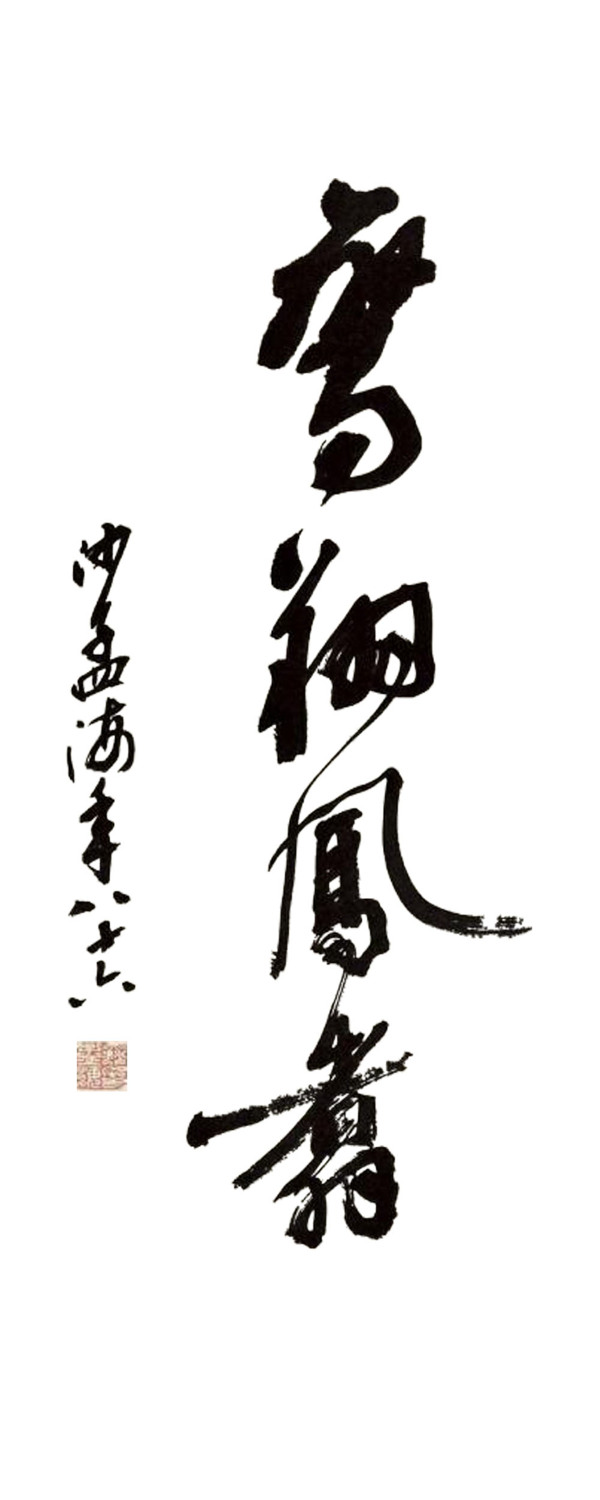 鸾翔鳳翥
沙孟海年八十六